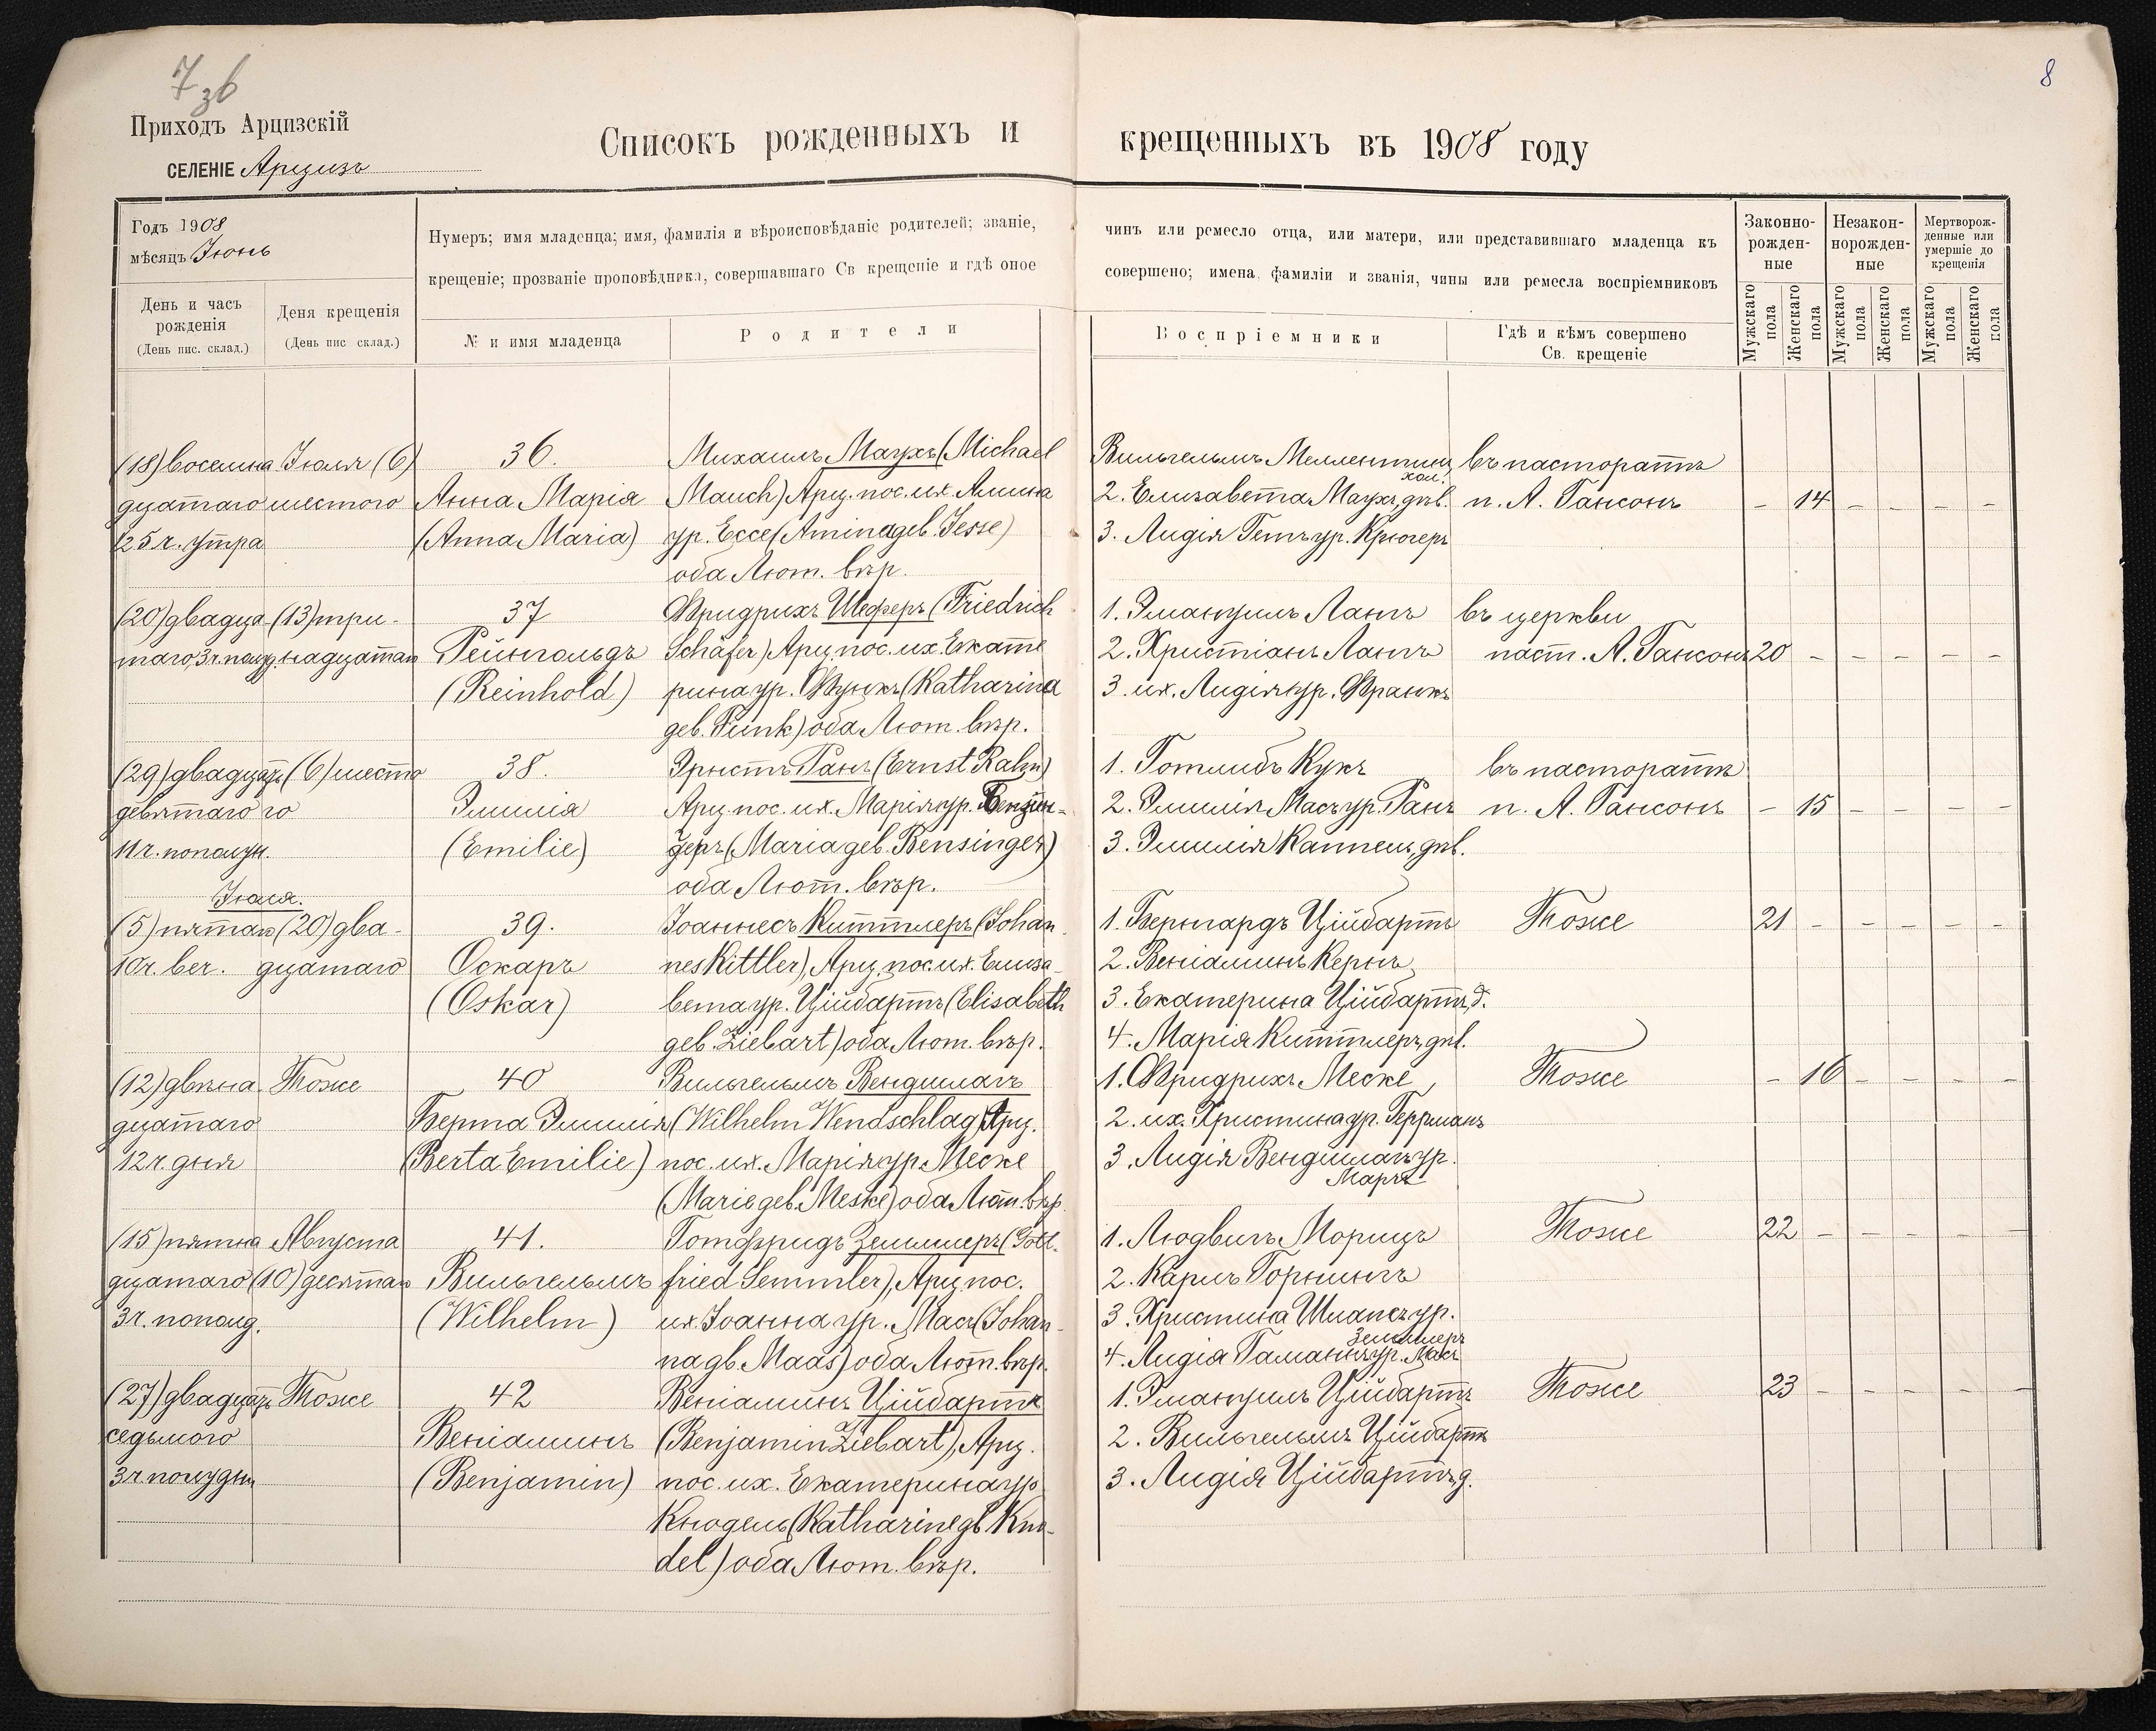 7зв
8
Приходъ Арцизскій
СЕЛЕНІЕ Арцизъ
Списокъ рожденныхъ и крещенныхъ въ 1908 году
Годъ 1908
мѣсяцъ Іюнь
День и часъ
рожденія
(День пис. склад.)
Деня крещенія
(День пис склад.)
Нумеръ; имя младенца; имя, фамилія и вѣроисповѣданіе родителей; званіе,
крещеніе; прозваніе проповѣдника, совершавшаго Св крещеніе и гдѣ оное
№ и имя младенца
Родители
чинъ или ремесло отца, или матери, или представившаго младенца къ
совершено; имена фамиліи и званія, чины или ремесла воспріемниковъ
Воспріемники
Гдѣ и кѣмъ совершено
Св. крещеніе
Законно-
рожден-
ные
Незакон-
норожден-
ные
Мертворож-
денные или
умершіе до
крещенія
Мужскаго
пола
Женскаго
пола
Мужскаго
пола
Женскаго
пола
Мужскаго
пола
Женскаго
пола
(18) восемна
дцатаго
5 ч. утра
Іюля (6)
шестого
36.
Анна Марія
(Anna Maria)
Михаилъ Маухъ (Michael
Mauch) Арц. пос. их. Амина
ур. Ессе (Amina geb. Jesse)
оба Лют. вѣр.
Вильгельмъ Меллентинъ
хол.
2. Елизавета Маухъ, дѣв.
3. Лидія Гетъ ур. Крюгеръ
въ пасторатѣ
п. А. Гансонъ
– 14 – – – –
(20) двадца
таго, 3 ч. полу.
(13) три-
надцатаго
37
Рейнгольдъ
(Reinhold)
Фридрихъ Шеферъ (Friedrich
Schäfer) Арц. пос. их. Екате
рина ур. Функъ (Katharina
geb. Funk) оба Лют. вѣр.
1. Эмануилъ Лангъ
2. Христіанъ Лангъ
3. их. Лидія ур. Франкъ
въ церкви
паст. А. Гансонъ
20 – – – – –
(29) двадцать
девятаго
11 ч. пополун.
(6) шесто
го
38.
Эмилія
(Emilie)
Эрнстъ Ранъ (Ernst Rahn)
Арц. пос. их. Марія ур. Бензин-
геръ (Maria geb. Bensinger)
оба Лют. вѣр.
1. Готлибъ Кукъ
2. Эмилія Масъ ур. Ранъ
3. Эмилія Каппель, дѣв.
въ пасторатѣ
п. А. Гансонъ
– 15 – – – –
Іюля.
(5) пятаго
10 ч. веч.
(20) два-
дцатаго
39.
Оскаръ
(Oskar)
Іоаннесъ Киттлеръ (Johan
nes Kittler), Арц. пос. их. Елиза-
вета ур. Цiйбартъ (Elisabeth
geb. Ziebart) оба Лют. вѣр.
1. Бернгардъ Цiйбартъ
2. Веніаминъ Кернъ
3. Екатерина Цiйбартъ, д.
4. Марія Киттлеръ, дѣв.
Тоже
21 – – – – –
(12) двѣна
дцатаго
12 ч. дня
Тоже
40
Берта Эмилія
(Berta Emilie)
Вильгельмъ Вендшлагъ
(Wilhelm Wendschlag) Арц.
пос. их. Марія ур. Меске
(Marie geb. Meske) оба Лют. вѣр.
1. Фридрихъ Меске
2. их. Христина ур. Геррманъ
3. Лидія Вендшлагъ ур.
Марчъ
Тоже
– 16 – – – –
(15) пятна
дцатаго
3 ч. пополд.
Августа
(10) десятаго
41.
Вильгельмъ
(Wilhelm)
Готфридъ Земмлеръ (Gott-
fried Semmler), Арц. пос.
их. Іоанна ур. Масъ (Johan-
na gb. Maas) оба Лют. вѣр.
1. Людвигъ Морицъ
2. Карлъ Горнингъ
3. Христина Шлапсъ ур.
Земмлеръ
4. Лидія Гаманнъ ур. Масъ
Тоже
22 – – – – –
(27) двадцать
седьмого
3 ч. полудни
Тоже
42
Веніаминъ
(Benjamin)
Веніаминъ Цiйбартъ
(Benjamin Ziebart), Арц.
пос. их. Екатерина ур
Кнодель (Katharine gb Kno-
del) оба Лют. вѣр.
1. Эмануилъ Цiйбартъ
2. Вильгельмъ Цiйбартъ
3. Лидія Цiйбартъ, д.
Тоже
23 – – – – –